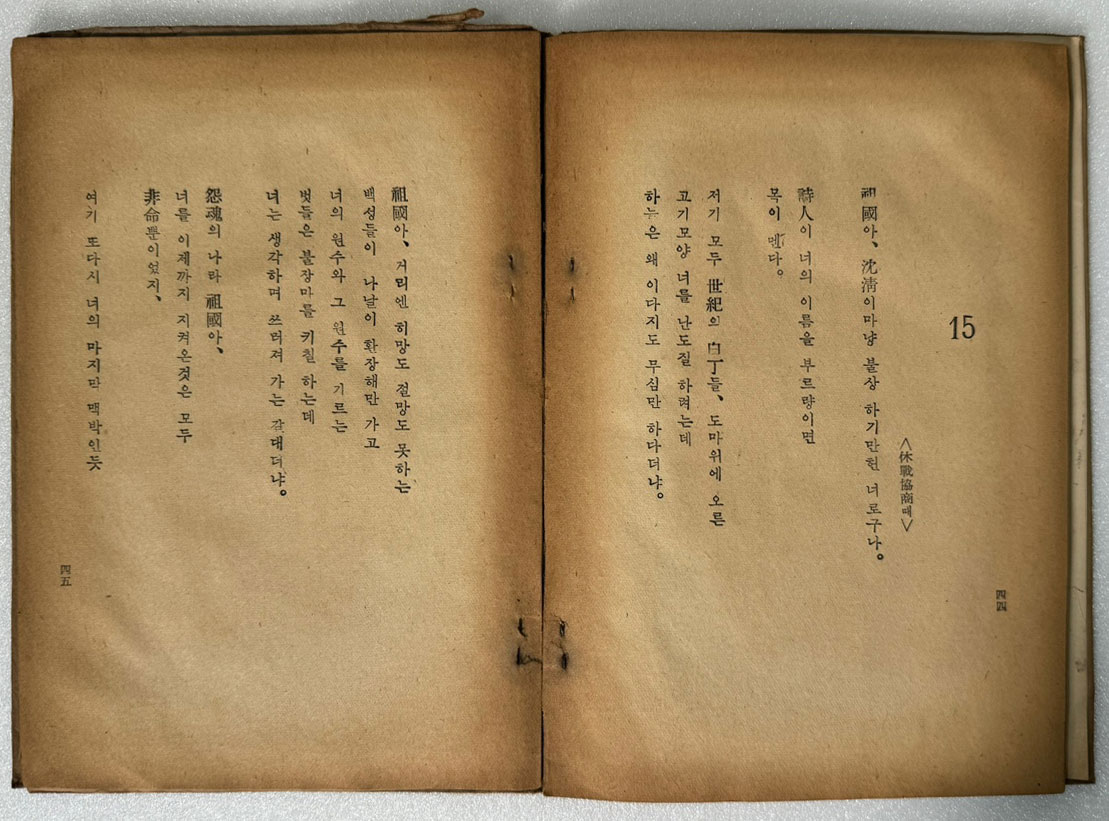 四四
15
<休戰協商때>
祖國아、沈淸이마냥 불상 하기만헌 너로구나。
詩人이 너의 이름을 부르량이면
목이 멘다。
저기 모두 世紀의 白丁들、도마위에 오른
고기모양 너를 난도질 하려는데
하늘은 왜 이다지도 무심만 하다더냐。
祖國아、거리엔 히망도 절망도 못하는
백성들이 나날이 환장해만 가고
너의 원수와 그 원수를 기르는
벗들은 불장마를 키칠 하는데
너는 생각하며 쓰러져 가는 갈대더냐。
怨魂의 나라 祖國아、
너를 이제까지 지켜온것은 모두
非命뿐이었지、
여기 또다시 너의 마지만 맥박인듯
四五